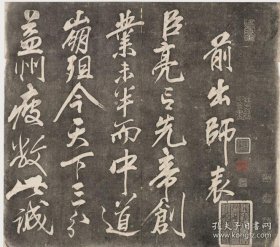 前出師表
臣亮言先帝創
業未半而中道
崩殂今天下三分
益州疲敝此誠
孔夫子旧书网